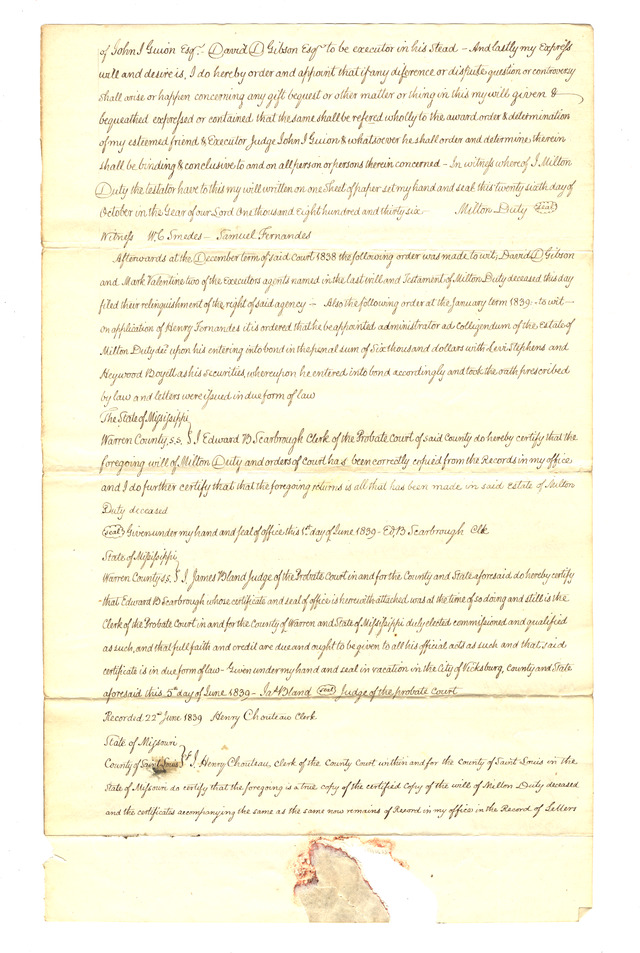 of John I Guion Esqr. David D Gibson Esqr to be executor in his Stead – And lastly my Express
will and desire is, I do hereby order and appoint that if any diference or dispute question or controversy
shall arise or happen concerning any gift bequest or other matter or thing in this my will given &
bequeathed expressed or contained that the same shall be refered wholly to the award order & determination
of my esteemed friend & Executor Judge John I Guion & whatsoever he shall order and determine therein
shall be binding & conclusive to and on all person or persons therein concerned – In witness where of I Milton
Duty the testator have to this my will written on one Sheet of paper set my hand and seal this twenty sixth day of
October in the Year of our Lord One thousand Eight hundred and thirty six – Milton Duty seal
Witness W. C Smedes – Samuel Fernandes
Afterwards at the December term of said Court 1838 the following order was made to wit; David D Gibson
and Mark Valentine two of the Executors agents named in the last will and Testament of Milton Duty deceased this day
filed their relinquishment of the right of said agency – Also the following order at the January term 1839 – to wit –
on application of Henry Fernandes it is ordered that he be appointed administrator ad colligendum of the Estate of
Milton Duty decd upon his entering into bond in the penal sum of Six thousand dollars with Levi Stephens and
Heywood Boyett as his securities, whereupon he entered into bond accordingly and took the oath prescribed
by law and letters were issued in due form of law
The State of Mississippi
Warren County, s.s. } I Edward B Scarbrough Clerk of the Probate Court of said County do hereby certify that the
foregoing will of Milton Duty and orders of court has been correctly copied from the Records in my office,
and I do further certify that that the foregoing returns is all that has been made in said Estate of Milton
Duty deceased
seal Given under my hand and seal of office this 1st day of June 1839 – Ed. B Scarbrough Clk
State of Mississippi
Warren County ss. } I, James Bland Judge of the Probate Court in and for the County and State aforesaid do hereby certify
that Edward B Scarbrough whose certificate and seal of office is herewith attached was at the time of so doing and still is the
Clerk of the Probate Court in and for the County of Warren and State of Mississippi duly elected commissioned and qualified
as such, and that full faith and credit are due and ought to be given to all his official acts as such and that said
certificate is in due form of law – Given under my hand and seal in vacation in the City of Vicksburg, County and State
aforesaid this 5th day of June 1839 – Jas Bland seal Judge of the probate Court
Recorded 22nd June 1839 Henry Chouteau Clerk
State of Missouri
County of Saint Louis } I, Henry Chouteau, clerk of the County Court within and for the County of Saint Louis in the
State of Missouri do certify that the foregoing is a true copy of the certified Copy of the will of Milton Duty deceased
and the certificates accompanying the same as the same now remains of Record in my office in the Record of Letters